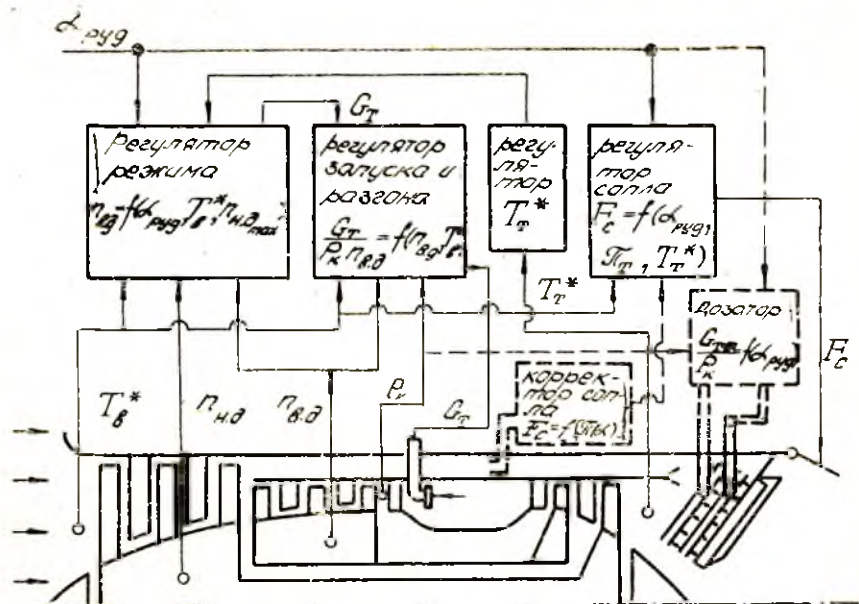 α руд
Gт
Регулятор
режима
nвд=f(αруд, Tв*, nн.д max)
регулятор
запуска и
разгона
Gт/Pк nв.д = f(nв.д, Tв*)
регу-
ля-
тор
Tт*
регуля-
тор
сопла
Fc = f(αруд,
πт, Tт*)
Tт*
Дозатор
Gтф/Pк = f(αруд)
Fc
коррек-
тор соп-
ла
Fc = f(πк)
Tв*
nн.д
nв.д
Pк
Gт